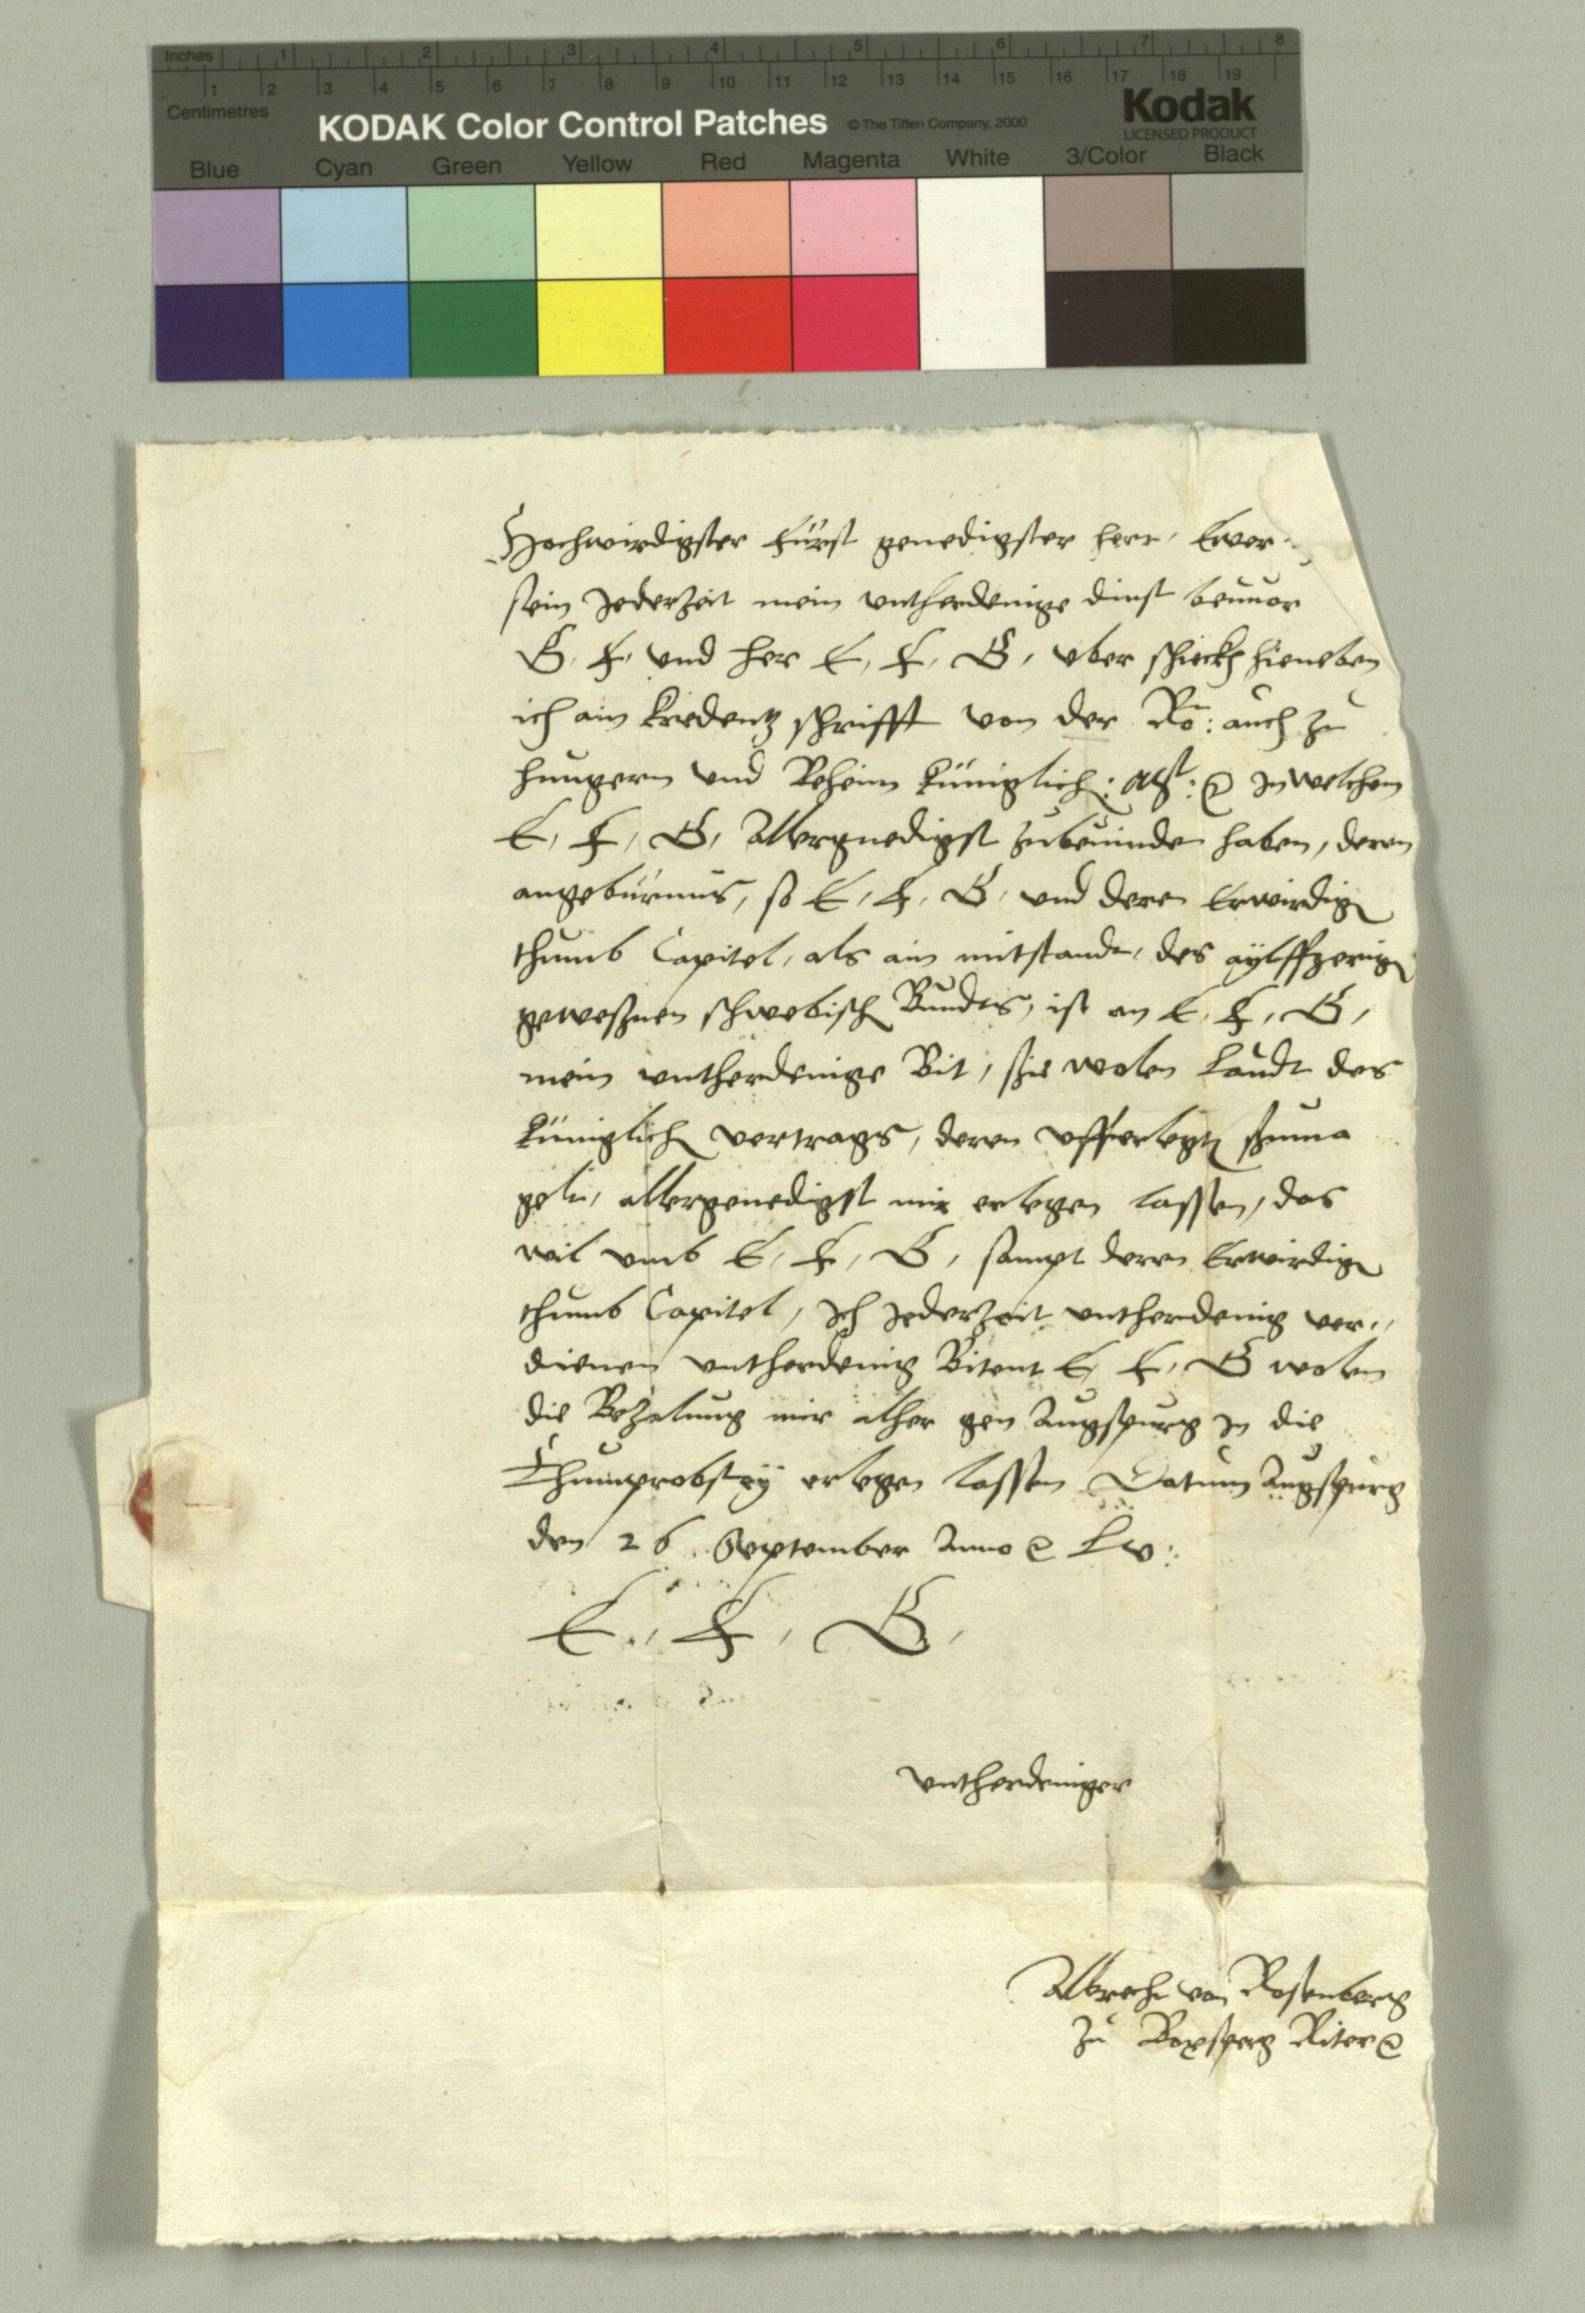 Inches 1 2 3 4 5 6 7 8
1 2 3 4 5 6 7 8 9 10 11 12 13 14 15 16 17 18 19
Centimetres
KODAK Color Control Patches © The Tiffen Company, 2000 Kodak
LICENSED PRODUCT
Blue Cyan Green Yellow Red Magenta White 3/Color Black
Hochwirdigster Fürst genedigster herr, Ewer
sein Jederzeit mein vntherdenige dinst beuuor
G. F. vnd her E, F, G, vber schickh hieneben
ich ain kredentz schrifft von der Rö: auch zu
hungern vnd Beheim küniglich: Mst: Inwelchem
E, F, G, Allergnedigst zubeuinden haben, deren
angebürnus, so E, F, G, vnd deren Erwirdig
thumb Capitel, als ain mitstandt, des aylffjerig
geweßnen schwebisch Bundts, ist an E, F, G,
mein vntherdenige Bit, sie wolen laudt des
küniglich vertrags, deren vfferlegt suma
gelt, allergenedigst mir erlegen lassen, das
wil vmb E, F, G, sampt deren Erwirdig
thumb Capitel, Ich Jederzeit vntherdenig ver,,
dienen vntherdenig Bitent E, F, G wolen
die Bezalung mir alher gen Augspurg In die
Thumprobstey erlegen lassen Datum Augspurg
den 26 September Anno Lv:
E, F, G,
vntherdeniger
Albrecht von Rosenberg
zu Boxsperg Riter